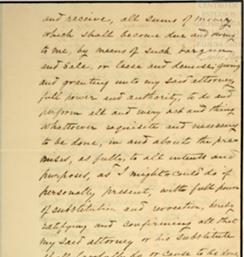 and receive, all sums of money
which shall become due and owing
to me, by means of such bargain
and sale, or lease and demise; giving
and granting unto my said attorney
full power and authority, to do and
perform all and every act and thing
whatsoever requisite and necessary
to be done, in and about the pre
mises, as fully, to all intents and
purposes, as I might or could do if
personally present, with full power
of substitution and revocation, hereby
ratifying and confirming all that
my said attorney or his substitute
shall lawfully do or cause to be done